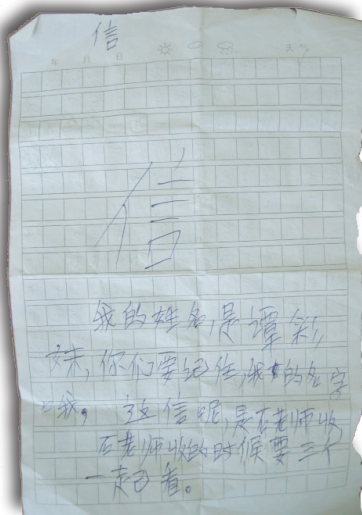 信
年 月 日 天气
信
我的姓名,是谭彩
妹,你们要记住,我的名字
哦。 这信呢,是石老师收
石老师收的时候要三个
一起看。